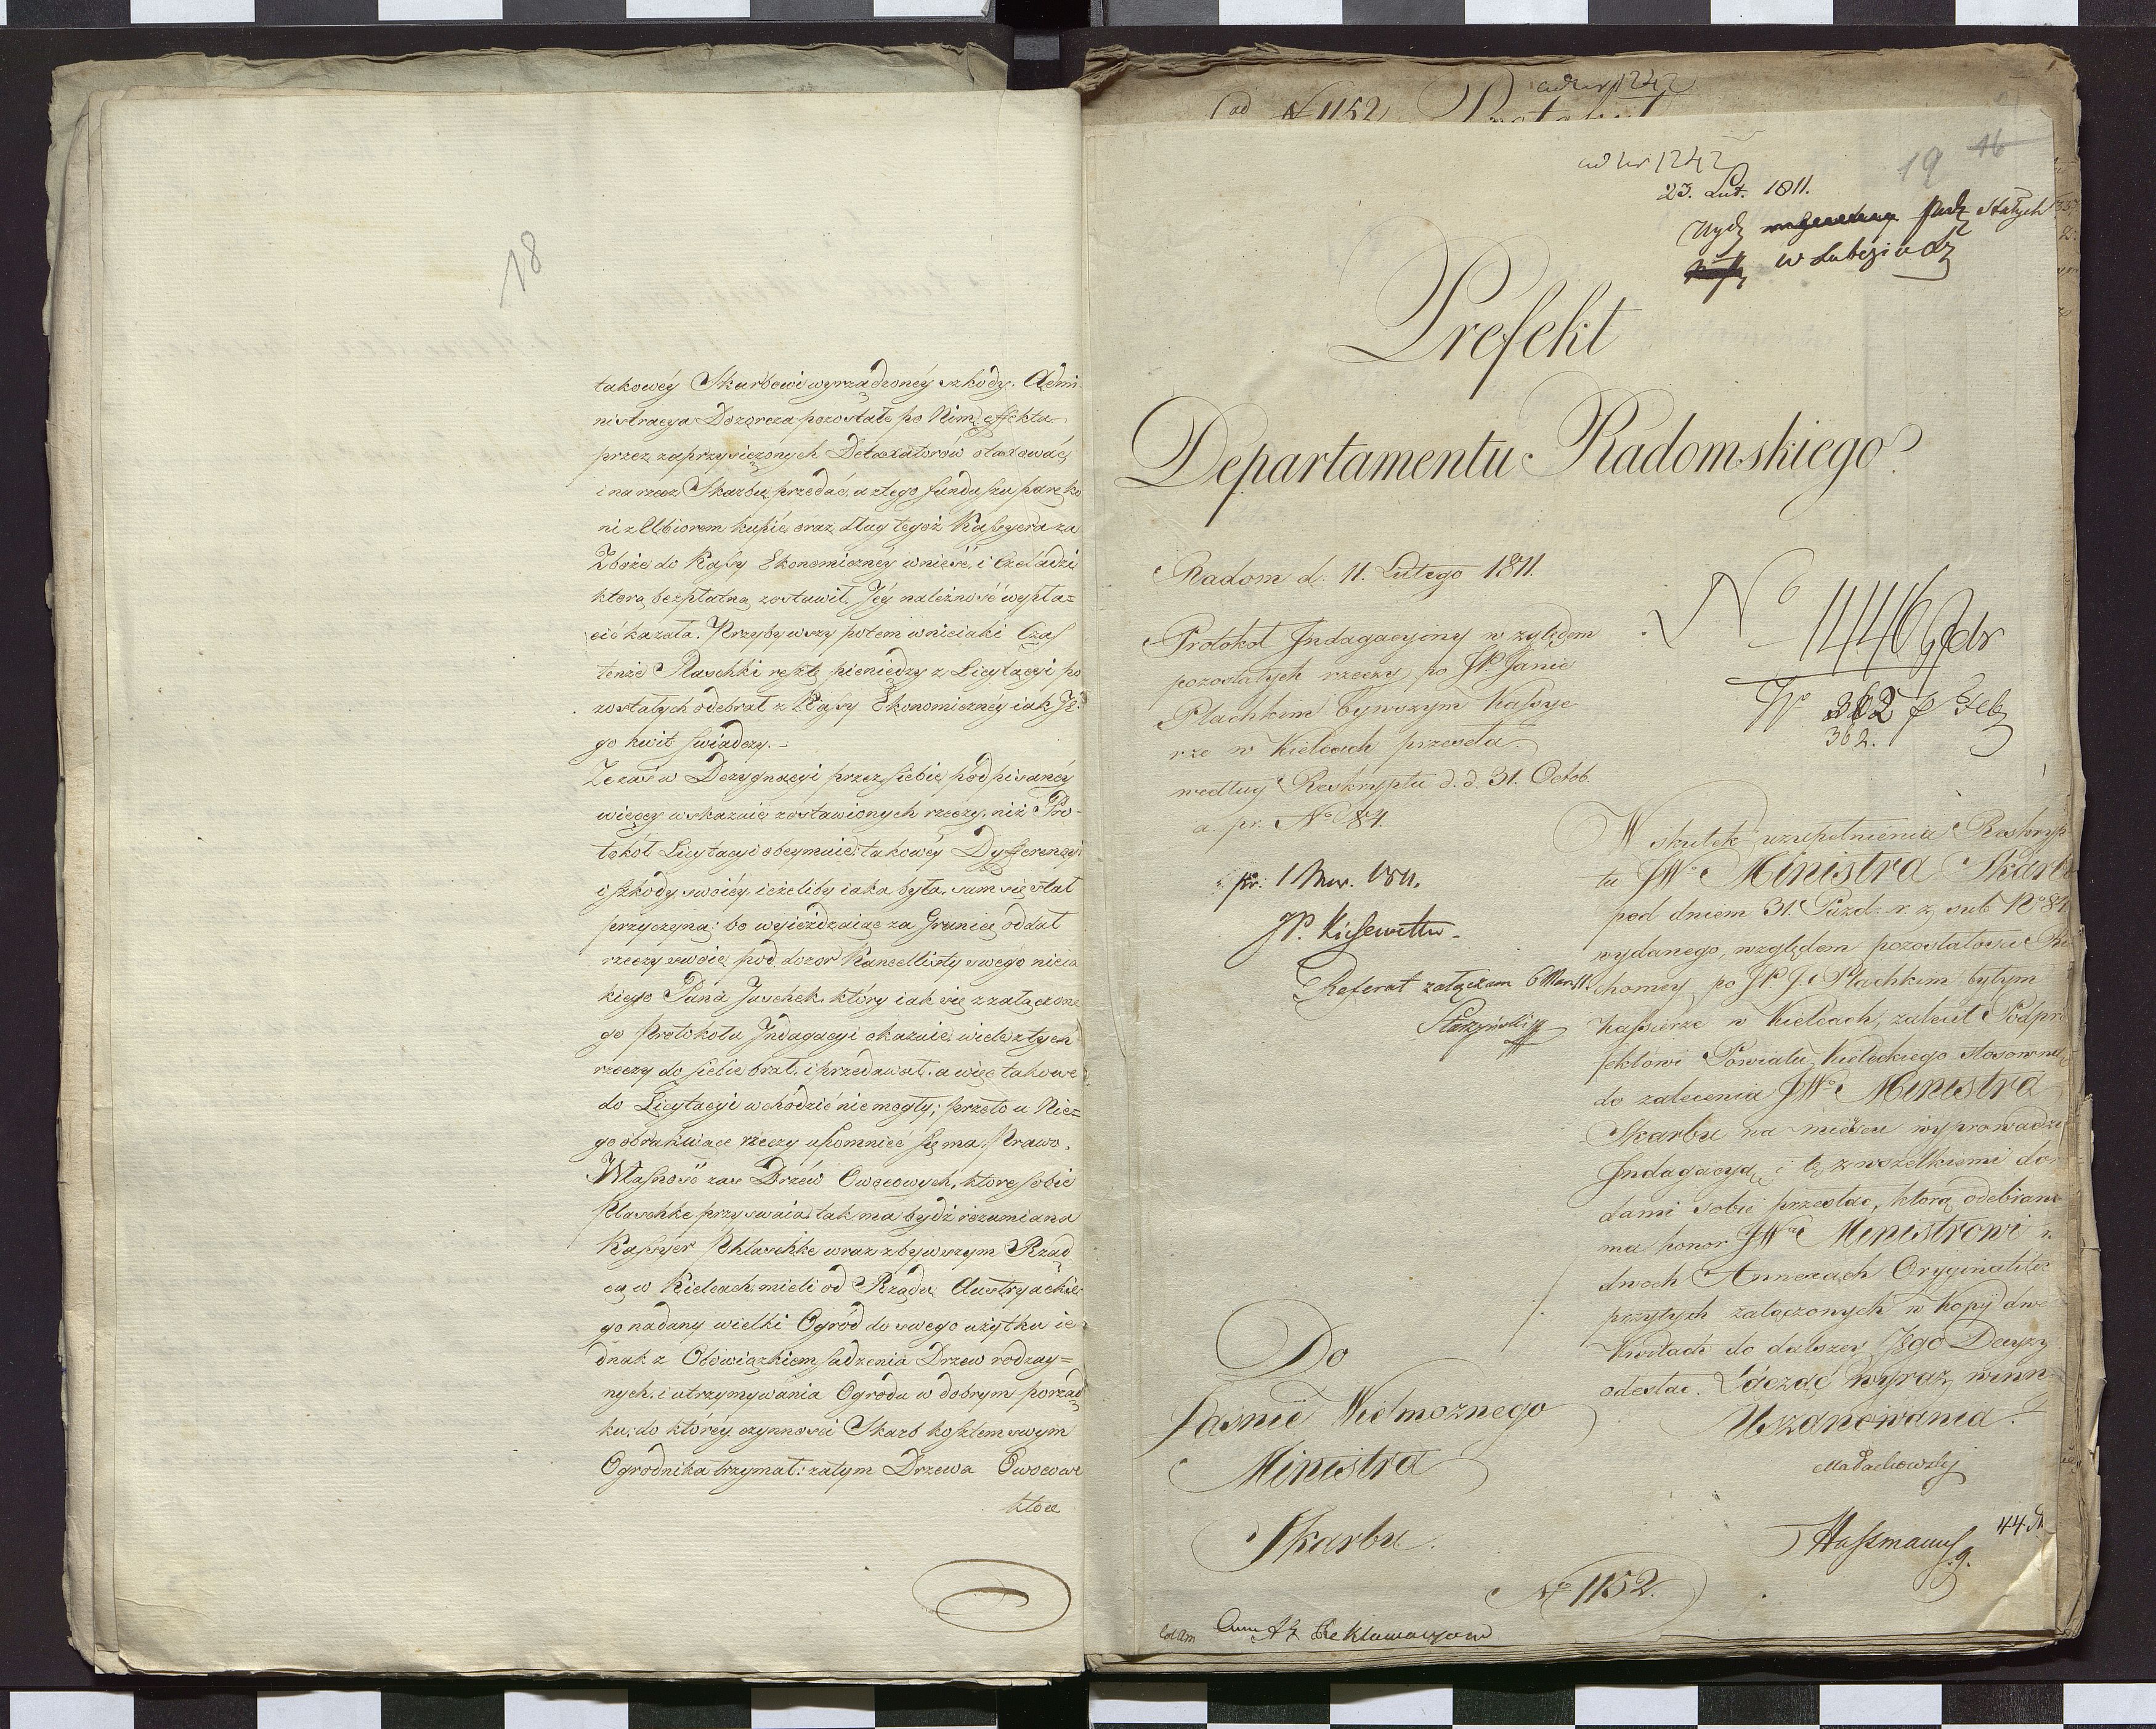 18
takowéy Skarbowi wyrządzonéy szkody. Admi-
nistracya Dozorcza pozostałe po Nim effekta
przez zaprzysiężonych Detaxatorów otaxować,
i na rzecz Skarbu przedać, a z tego funduszu parę ko
ni z Ubiorem kupić, oraz dług tegoż Kassyera za
Zboże do Kassy Ekonomicznéy wnieść, i Czeladzi
którą bezpłatną zostawił, Jéy należność wypła=
cić kazała. Przybywszy potem w niejaki Czas
tenże Plaschki resztę pieniędzy z Licytacyi po
zostałych odebrał z Kassy Ekonomicznéy iak Je
go kwit świadczy. -
Ze zaś w Dezygnacyi przez siebie podpisanéy
więcey wskazuie zostawionych rzeczy, niż Pro-
tokół Licytacyi obeymuie: takowéy Dyfferencyi
i szkody swoiéy, ieżeliby iaka była, sam się stał
przyczyną: bo wyieżdzaiąc za Granicę oddał
rzeczy swoie pod dozor Kancellisty swego nieia
kiego Pana Jaschek, który iak się z załączone
go Protokołu Jndagacyi okazuie, wiele z tych
rzeczy do siebie brał, i przedawał, a więc takowe
do Licytacyi wchodzić nie mogły; przeto u Nie=
go o brakuiące rzeczy upomnieć się ma Prawo.
Własność zaś Drzéw Owocowych, które sobie
Plaschke przyswaia, tak ma bydź rozumiana
Kassyer Phlaschke wraz z bywszym Rząd
cą w Kielcach, mieli od Rządu Austryackie
go nadany wielki Ogród do swego użytku ie
dnak z Obowiązkiem sadzenia Drzew rodzay=
nych, i utrzymywania Ogrodu w dobrym porząd
ku, do któréy czynności Skarb kosztem swym
Ogrodnika trzymał: zatym Drzewa Owocowe
które
ad N 1152
ad nr 1242
Protokuł
ad nr 1242
19 16
23. Lut. 1811.
Wydz stałych
w
Prefekt
Departamentu Radomskiego
Radom d. 11. Lutego 1811.
Protokoł Jndagacyiny względem
pozostałych rzeczy po JP Janie
Plachkim bywszym Kassye
rze w Kielcach przesyła.
według Reskryptu d. d. 31. Octob.
a. pr. No 84.
pr. 1 Mar. 1811.
JP. Kiesewetter
Referat załączam 6 Mar. 11.
No 1446
No 362
362.
W skutek uzupełnienia Reskryp
tu JWo Ministra Skarbu
pod dniem 31. Pazd. r. z. sub No 84
wydanego, względem pozostałości Ru
chomey po JP J. Plachkim byłym
Kassierze w Kielcach, zalecił Podpre
fektowi Powiatu Kieleckiego stosownie
do zalecenia JWo Ministra
Skarbu na mieiscu wyprowadzić
Jndagacyą, i tę z wszelkiemi do
dami sobie przesłac, ktorą odebrane
ma honor JWu Ministrowi w
dwoch Annexach Oryginalite
przytych załączonych w Kopij dwo
Kwitach do dalszey Jego Decyzyi
odesłac. Łącząc wyraz winn
Uszanowania.
Małachowskj
Do
Jasnie Wielmoznego
Ministra
Skarbu.
Hassmann
No 1152.